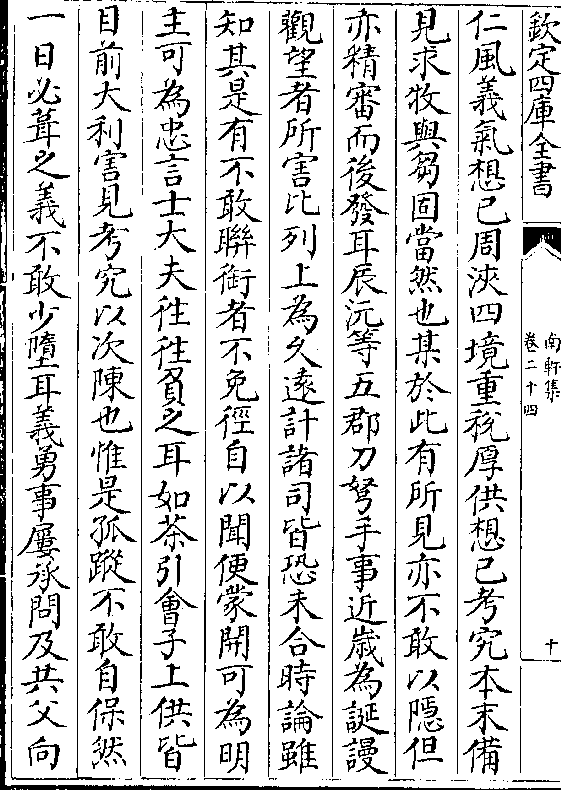 欽定四庫全書
南軒集
卷二十四
十
仁風義氣想已周浹四境重稅厚供想已考究本末備
見求牧與芻固當然也某於此有所見亦不敢以隱但
亦精審而後發耳辰沅等五郡刀弩手事近歲為誕謾
觀望者所害比列上為久遠計諸司皆恐未合時論雖
知其是有不敢聯銜者不免徑自以聞便蒙開可為明
主可為忠言士大夫徃徃負之耳如茶引會子上供皆
目前大利害見考究以次陳也惟是孤蹤不敢自保然
一日必葺之義不敢少墮耳義勇事屢承問及共父向